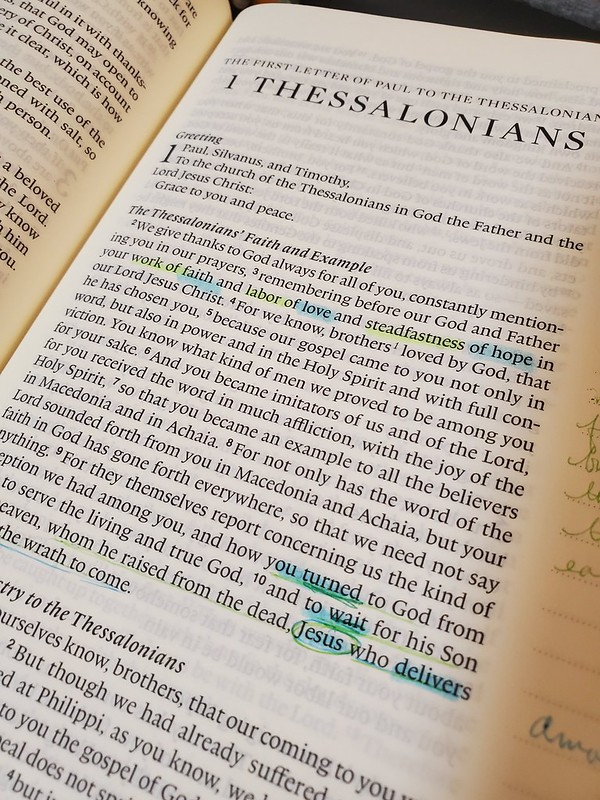 are
knowing
in it with thanks-
that God may open to
of Christ, on account
it clear, which is how
the best use of the
with salt, so
a person.
a beloved
the Lord.
know
him
you.
THE FIRST LETTER OF PAUL TO THE THESSALONIAN
1 THESSALONIANS
Greeting
1 Paul, Silvanus, and Timothy,
To the church of the Thessalonians in God the Father and the
Lord Jesus Christ:
Grace to you and peace.
The Thessalonians' Faith and Example
2 We give thanks to God always for all of you, constantly mention-
ing you in our prayers, 3 remembering before our God and Father
your work of faith and labor of love and steadfastness of hope in
our Lord Jesus Christ. 4 For we know, brothers loved by God, that
he has chosen you, 5 because our gospel came to you not only in
word, but also in power and in the Holy Spirit and with full con-
viction. You know what kind of men we proved to be among you
for your sake. 6 And you became imitators of us and of the Lord,
for you received the word in much affliction, with the joy of the
Holy Spirit, 7 so that you became an example to all the believers
in Macedonia and in Achaia. 8 For not only has the word of the
Lord sounded forth from you in Macedonia and Achaia, but your
faith in God has gone forth everywhere, so that we need not say
nything. 9 For they themselves report concerning us the kind of
eption we had among you, and how you turned to God from
to serve the living and true God, 10 and to wait for his Son
eaven, whom he raised from the dead, Jesus who delivers
the wrath to come.
stry to the Thessalonians
ourselves know, brothers, that our coming to you
2 But though we had already suffered
d at Philippi, as you know, we
to you the gospel of
peal does not
4 but